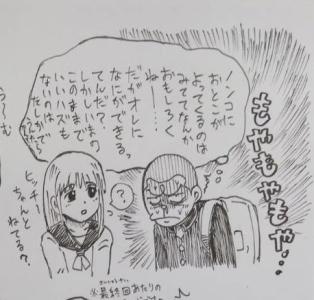 もやもやもや…
ノンコに
おとこが
よってくるのは
みててなんか
おもしろく
ねー……
だがオレに
なにができる
てんだ?
しかしいまの
このままで
いいハズも
ないのは
たしか
う〜む
?
ヒッチー
ちゃんと
ねてる?
※最終回あたりの